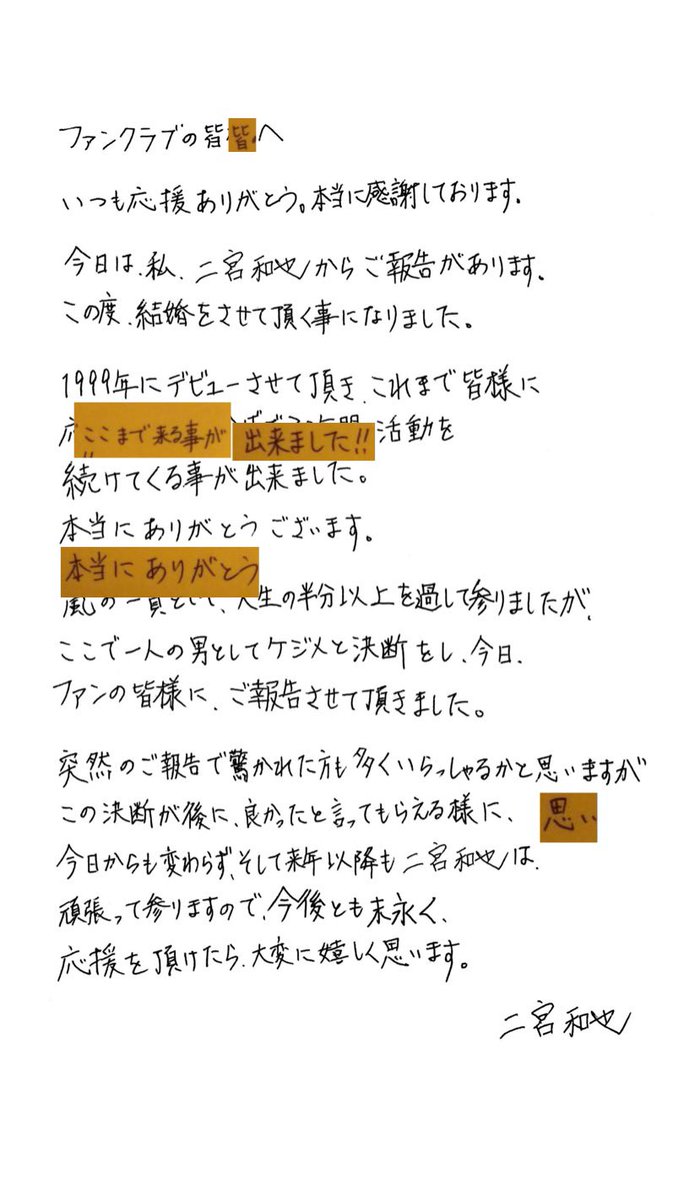 ファンクラブの皆皆へ
いつも応援ありがとう。本当に感謝しております。
今日は、私、二宮和也からご報告があります。
この度、結婚をさせて頂く事になりました。
1999年にデビューさせて頂き、これまで皆様に
ここまで来る事が 出来ました!! 活動を
続けてくる事が出来ました。
本当にありがとうございます。
本当にありがとう
嵐の一員として、人生の半分以上を過して参りましたが、
ここで一人の男としてケジメと決断をし、今日、
ファンの皆様に、ご報告させて頂きました。
突然のご報告で驚かれた方も多くいらっしゃるかと思いますが
この決断が後に、良かったと言ってもらえる様に、 思い
今日からも変わらず、そして来年以降も二宮和也は、
頑張って参りますので、今後とも末永く、
応援を頂けたら、大変に嬉しく思います。
二宮和也